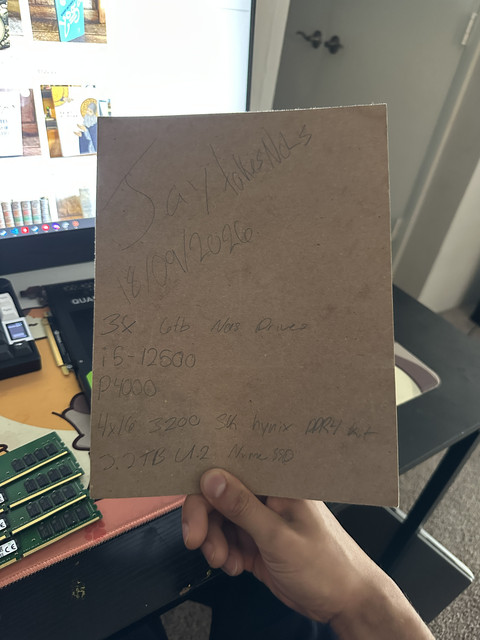 JaytakesNoLs
18/09/2026
3x 6tb Nas Drives
i5-12600
P4000
4x16 3200 Sk hynix DDR4 kit
3.2TB U.2 Nvme SSD